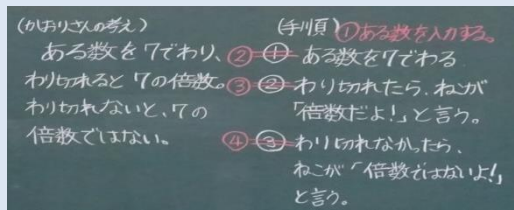 (かおりさんの考え)
ある数を7でわり、
わり切れると7の倍数。
わり切れないと、7の
倍数ではない。
(手川頁) ①ある数を入力する。
② ① ある数を7でわる
③ ② わり切れたら、ねこが
「倍数だよ!」と言う。
④ ③ わり切れなかったら、
ねこが「倍数ではないよ!」
と言う。